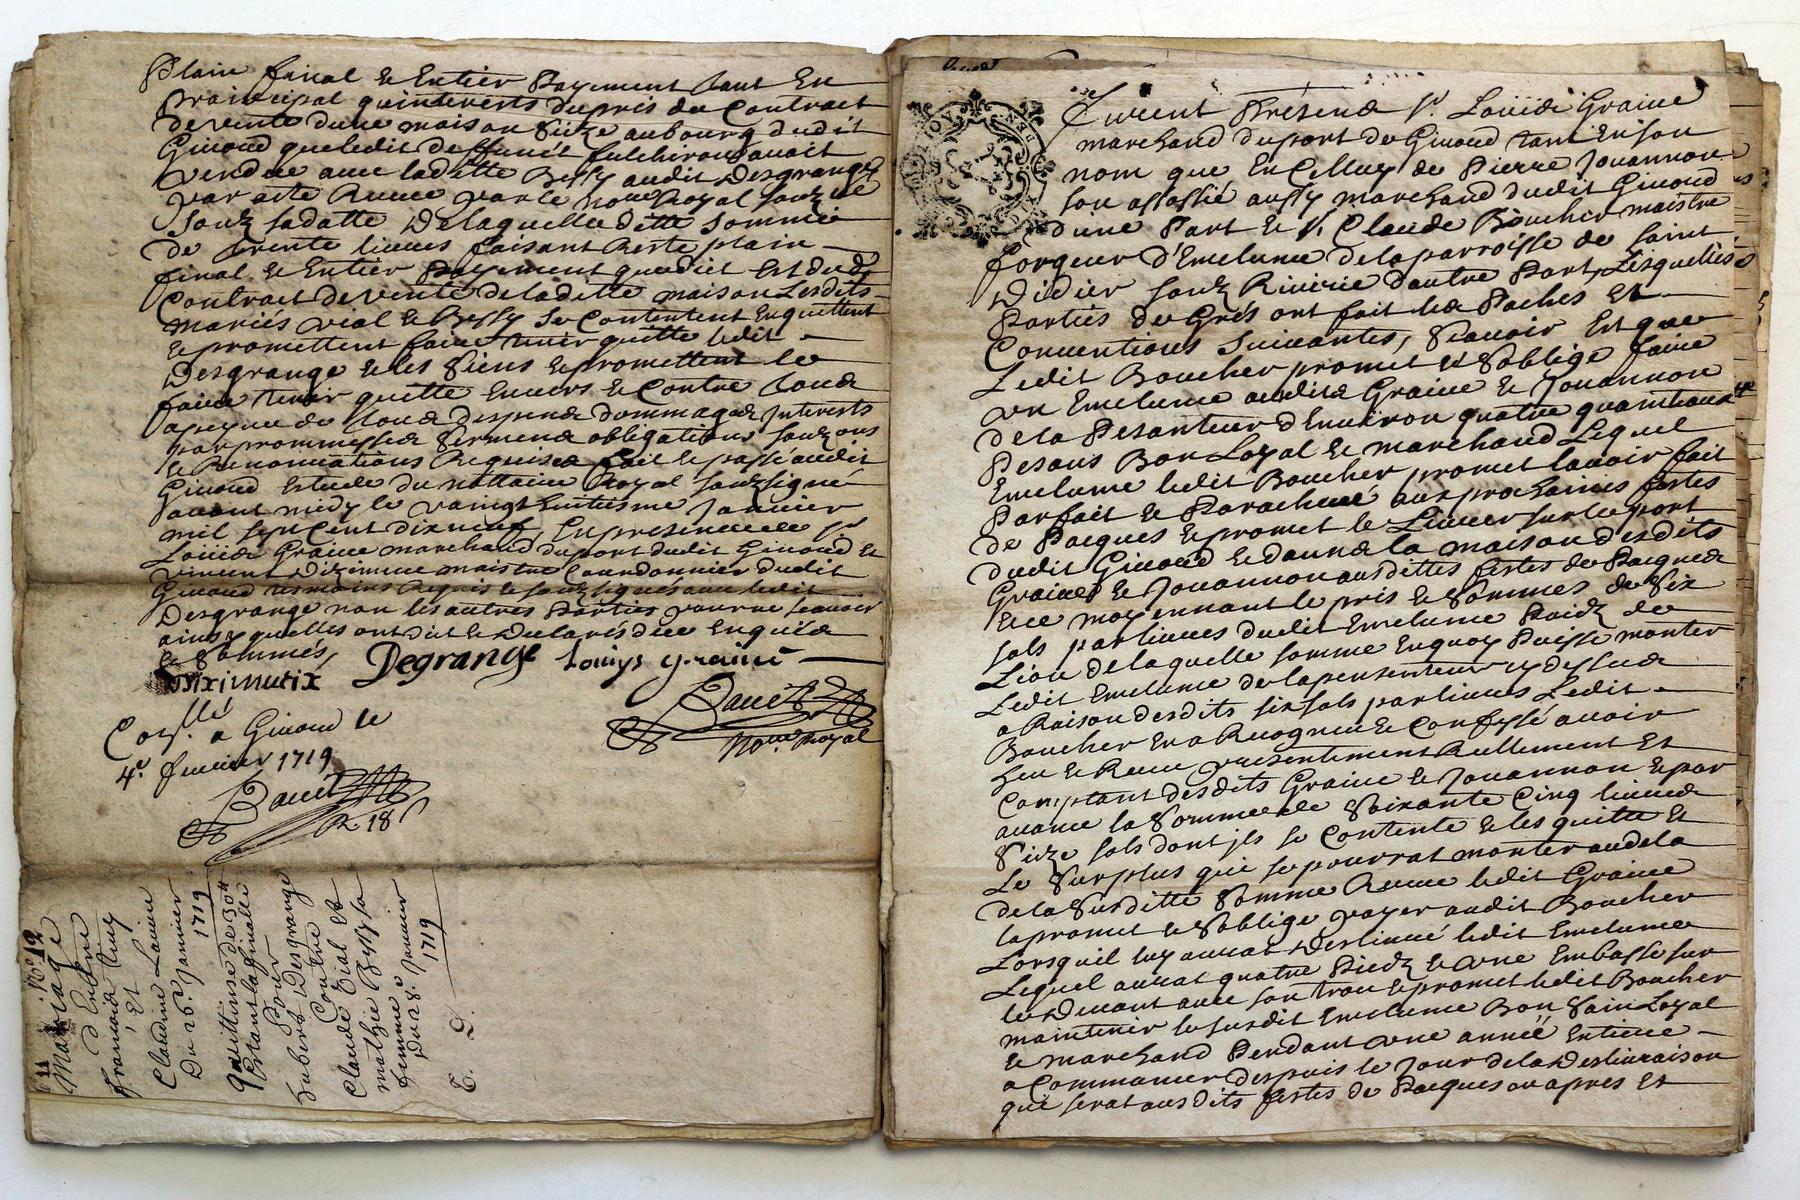 Plain final & Entier Payement tant En
Prainscipal quinterests du pris du Contract
de vente dune maison Size au bourg dudit
Givord que ledit deffunct fulchiron avoit
vendue avec laditte Bessy audit Desgrange
par acte Receu par le nore Royal soubz né
soubz sa datte De laquelle ditte somme
de trente livres faisant Reste plain
final & Entier payement que dict Est dudt
Contract de vente de laditte maison Lesdits
mariés vial & Bessy se Contentent En quittent
& promettent faire tenir quitte ledit
Desgrange & les Siens & promettent le
faire tenir quitte Envers & Contre tous
a peyne de tous despens dommages Interests
par prommesses serments obligations soubzons
& Renonciations Requises fait & passé audit
Givord Estude du nottaire Royal soubzsigné
avant midy le vaingt huitiesme Janvier
mil sept Cent dix neuf, En presence de sr
Louis Graine marchand du port dudit Givord Et
vincent Diximieux maistre Courdonnier dudit
Givord tesmoins Requis & soubzsignés avec ledit
Desgrange non les autres Parties pour ne scavoir
ainsy quelles ont dit & Declarés de ce Enquis
& Sommés,
Diximieix Degrange Louys graine
Bauet
nore Royal
Collé a Givord le
4e fevrier 1719
Bauet
R. 18s
Mariage No 12
d'Entre
francois
Et
Claudine
Du 26e Janvier
1719
quittance de 30 ₶
Estant la finalle
Pour
hubert Desgrange
Contre
Claude Vial Et
mathie Bessy sa
femme
Du 28e Janvier
1719
C. D.
Furent Présens sr Louis Graine
marchand du port de Givord tant En son
nom que En Celluy de Pierre Jouannon
son assossié aussy marchand dudit Givord
d'une Part & sr Claude Boucher maistre
forgeur d'Emclume de la parroisse de saint
Didier soubz Riverie d'autre Part, Lesquelles
Parties de Grés ont fait les Paches Et
Conventions suivantes, Scavoir Est que
Ledit Boucher promet & s'oblige faire
un Emclume audits Graine & Jouannon
de la Pesanteur d'Environ quatre quaintaux
Pesans Bon Loyal & marchand Lequel
Emclume ledit Boucher promet lavoir fait
Parfait & Parachevé aux prochaines festes
de Pacques & promet le Livrer sur le port
dudit Givord & dans la maison desdits
Graine & Jouannon ausdittes festes de Pacques
& ce moyennant le pris & sommes de Six
sols par livres dudit Emclume Poidz de
Lion de laquelle somme En quoy Puisse monter
Ledit Emclume de la pensenteur cy dessus
a Raison desdits six sols par livres Ledit
Boucher En a Recogneu & Confessé avoir
heu & Receu presentement Reellement Et
Comptant desdits Graine & Jouannon & par
avance la somme de Soixante Cinq livres
Seize sols dont jls se Contente & les quitte Et
Le Surplus qui se pourrat monter audela
de la Susditte Somme Receue ledit Graine
la promet & s'oblige payer audit Boucher
Lorsquil luy aurat Deslivré ledit Emclume
Lequel aurat quatre Piedz & une Embasse sur
le devant avec son trou & promet ledit Boucher
maintenir le susdit Emclume Bon Sain Loyal
& marchand Pendant une année Entiere
a Commancer despuis le Jour de la Deslivraison
qui serat ausdits festes de Pacques ou apres Et